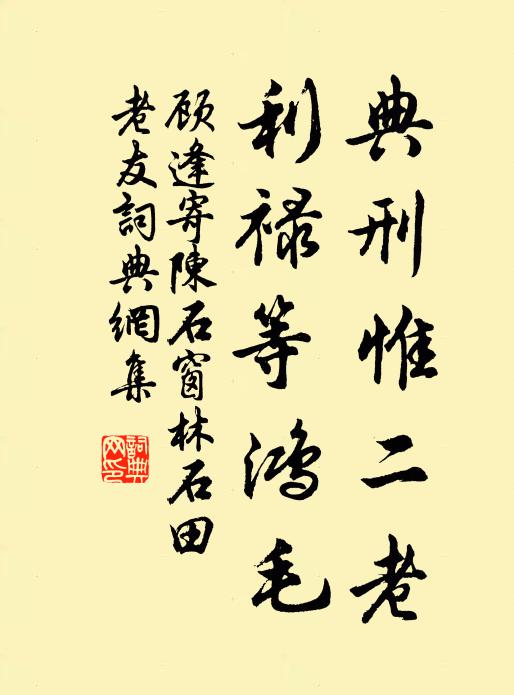 典刑惟二老
利禄等鸿毛
顾逢寄陳石窗林石田
老友詞典網集
詞典网印